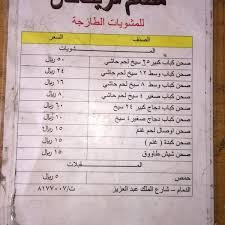 للمشويات الطازجة
الصنف السعر
المشويات
صحن كباب كبير ٢٥ سيخ لحم حاشي ٥٠ ريال
صحن كباب وسط ١٢ سيخ لحم حاشي ٢٤ ريال
صحن كباب وسط ٨ سيخ لحم حاشي ١٦ ريال
صحن كباب صغير ٤ سيخ لحم حاشي ٨ ريال
صحن كباب دجاج كبير ٨ سيخ ٢٠ ريال
صحن كباب دجاج صغير ٤ سيخ ١٠ ريال
صحن اوصال لحم غنم ١٥ ريال
صحن كبدة ( غنم ) ١٥ ريال
صحن شيش طاووق ١٥ ريال
المقبلات
حمص ٥ ريال
الدمام - شارع الملك عبد العزيز ت/٨١٧٧٠٠٧